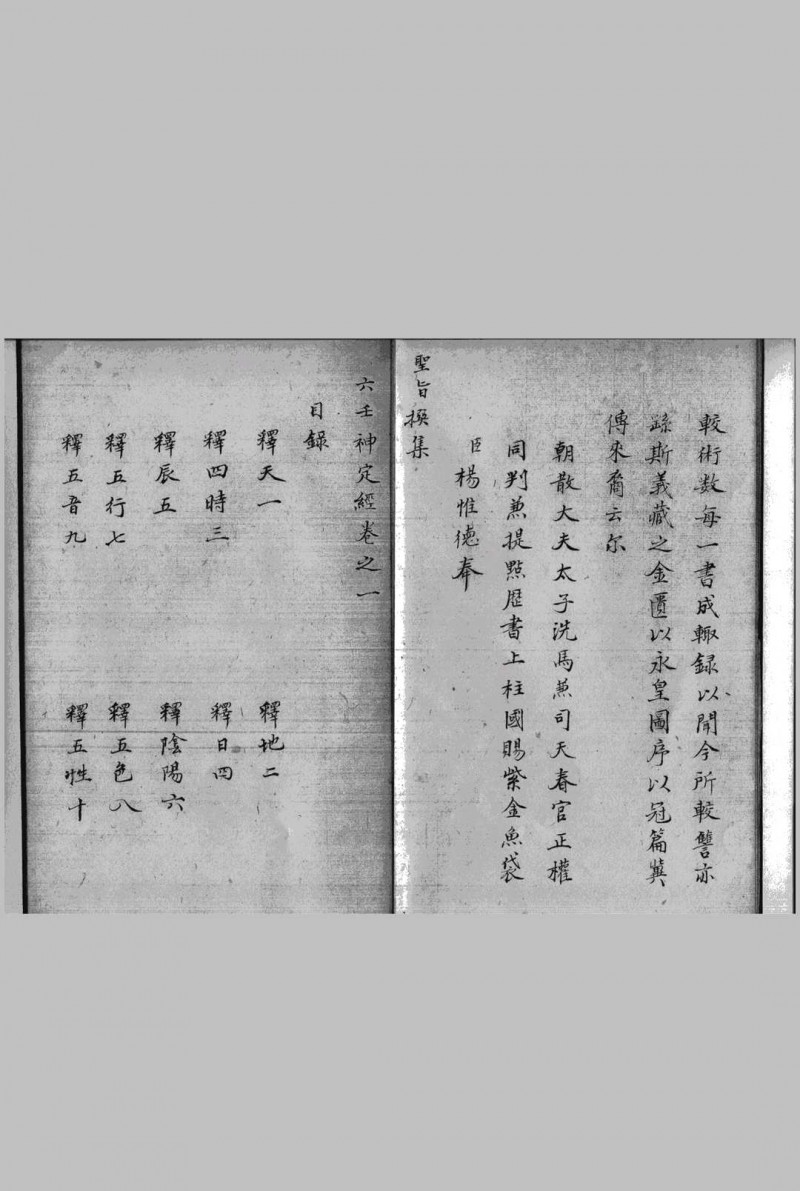 較術数每一書成輙録以聞今所較讐亦
踵斯義藏之金匱以永皇圖序以冠篇冀
傳來裔云尔
朝散大夫太子洗馬兼司天春官正權
同判兼提點歴書上柱國賜紫金魚袋
臣楊惟德奉
聖旨撰集
六壬神定經卷之一
目録
釋天一 釋地二
釋四時三 釋日四
釋辰五 釋陰陽六
釋五行七 釋五色八
釋五音九 釋五性十